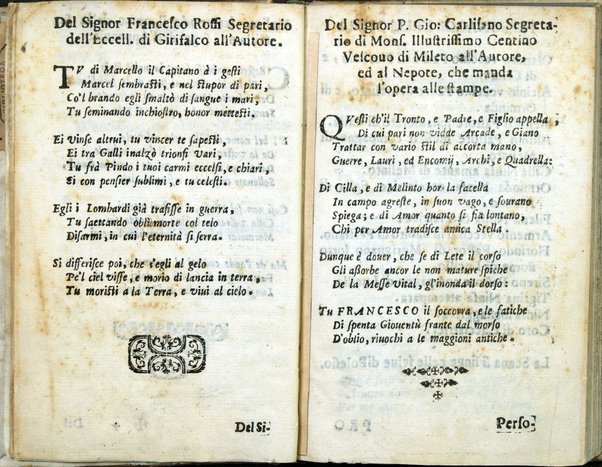 Del Signor Francesco Rossi Segretario
dell'Eccell. di Girifalco all'Autore.
TV di Marcello il Capitano à i gesti
Marcel sembrasti, e nel stupor di pari,
Co'l brando egli smaltò di sangue i mari,
Tu seminando inchiostro, honor mettesti.
Ei vinse altrui, tu vincer te sapesti,
Ei tra Galli inalzò trionfi vari,
Tu frà Pindo i tuoi carmi eccelsi, e chiari,
Si con pensier sublimi, e tu celesti.
Egli i Lombardi già trafisse in guerra,
Tu saettando oblì morte col telo
Disarmi, in cui l'eternità si serra.
Si differisce poi, che s'egli al gelo
Pe'l ciel visse, e morìo di lancia in terra,
Tu moristi a la Terra, e vivi al cielo.
Del Si-
Del Signor P. Gio: Carlisano Segreta-
rio di Mons. Illustrissimo Centino
Vescouo di Mileto all'Autore,
ed al Nepote, che manda
l'opera alle stampe.
QVesti ch'il Tronto, e Padre, e Figlio appella,
Di cui pari non vidde Arcade, e Giano
Trattar con vario stil di accorta mano,
Guerre, Lauri, ed Encomij, Archi, e Quadrella:
Di Cilla, e di Melinto hor la facella
In campo agreste, in suon vago, e sourano
Spiega; e di Amor quanto si fia lontano,
Chi per Amor tradisce amica Stella.
Dunque è douer, che se di Lete il corso
Gli assorbe ancor le non mature spiche
De la Messe vital, gl'inonda il dorso:
Tu FRANCESCO il soccorra, e le fatiche
Di spenta Giouentù frante dal morso
D'oblio, riuochi a le maggioni antiche.
Perso-